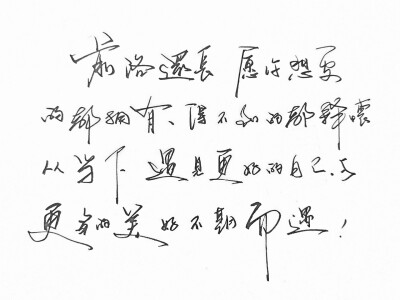 前路還長 愿你想要
的都拥有、得不到的都釋懷
从当下 遇見更好的自己,与
更多的美好不期而遇!